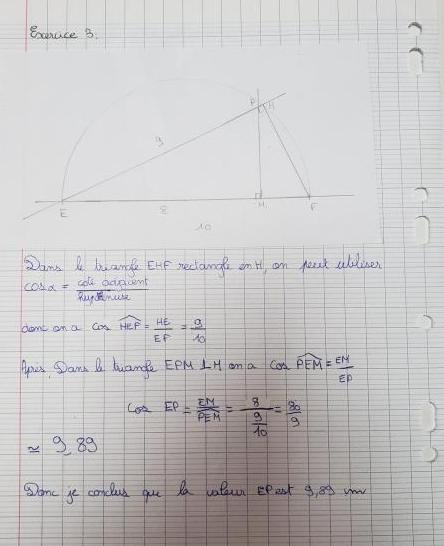 Exercice 3.
P H
9
E 8 M F
10
Dans le triangle EHF rectangle en H, on peut utiliser
cos α = côté adjacent / Hypoténuse
donc on a cos HEF = HE / EF = 9 / 10
Après, Dans le triangle EPM ⊥ M on a cos PEM = EM / EP
cos EP = EM / PEM = 8 / (9 / 10) = 80 / 9
≈ 9,89
Donc je conclus que la valeur EP est 9,89 cm